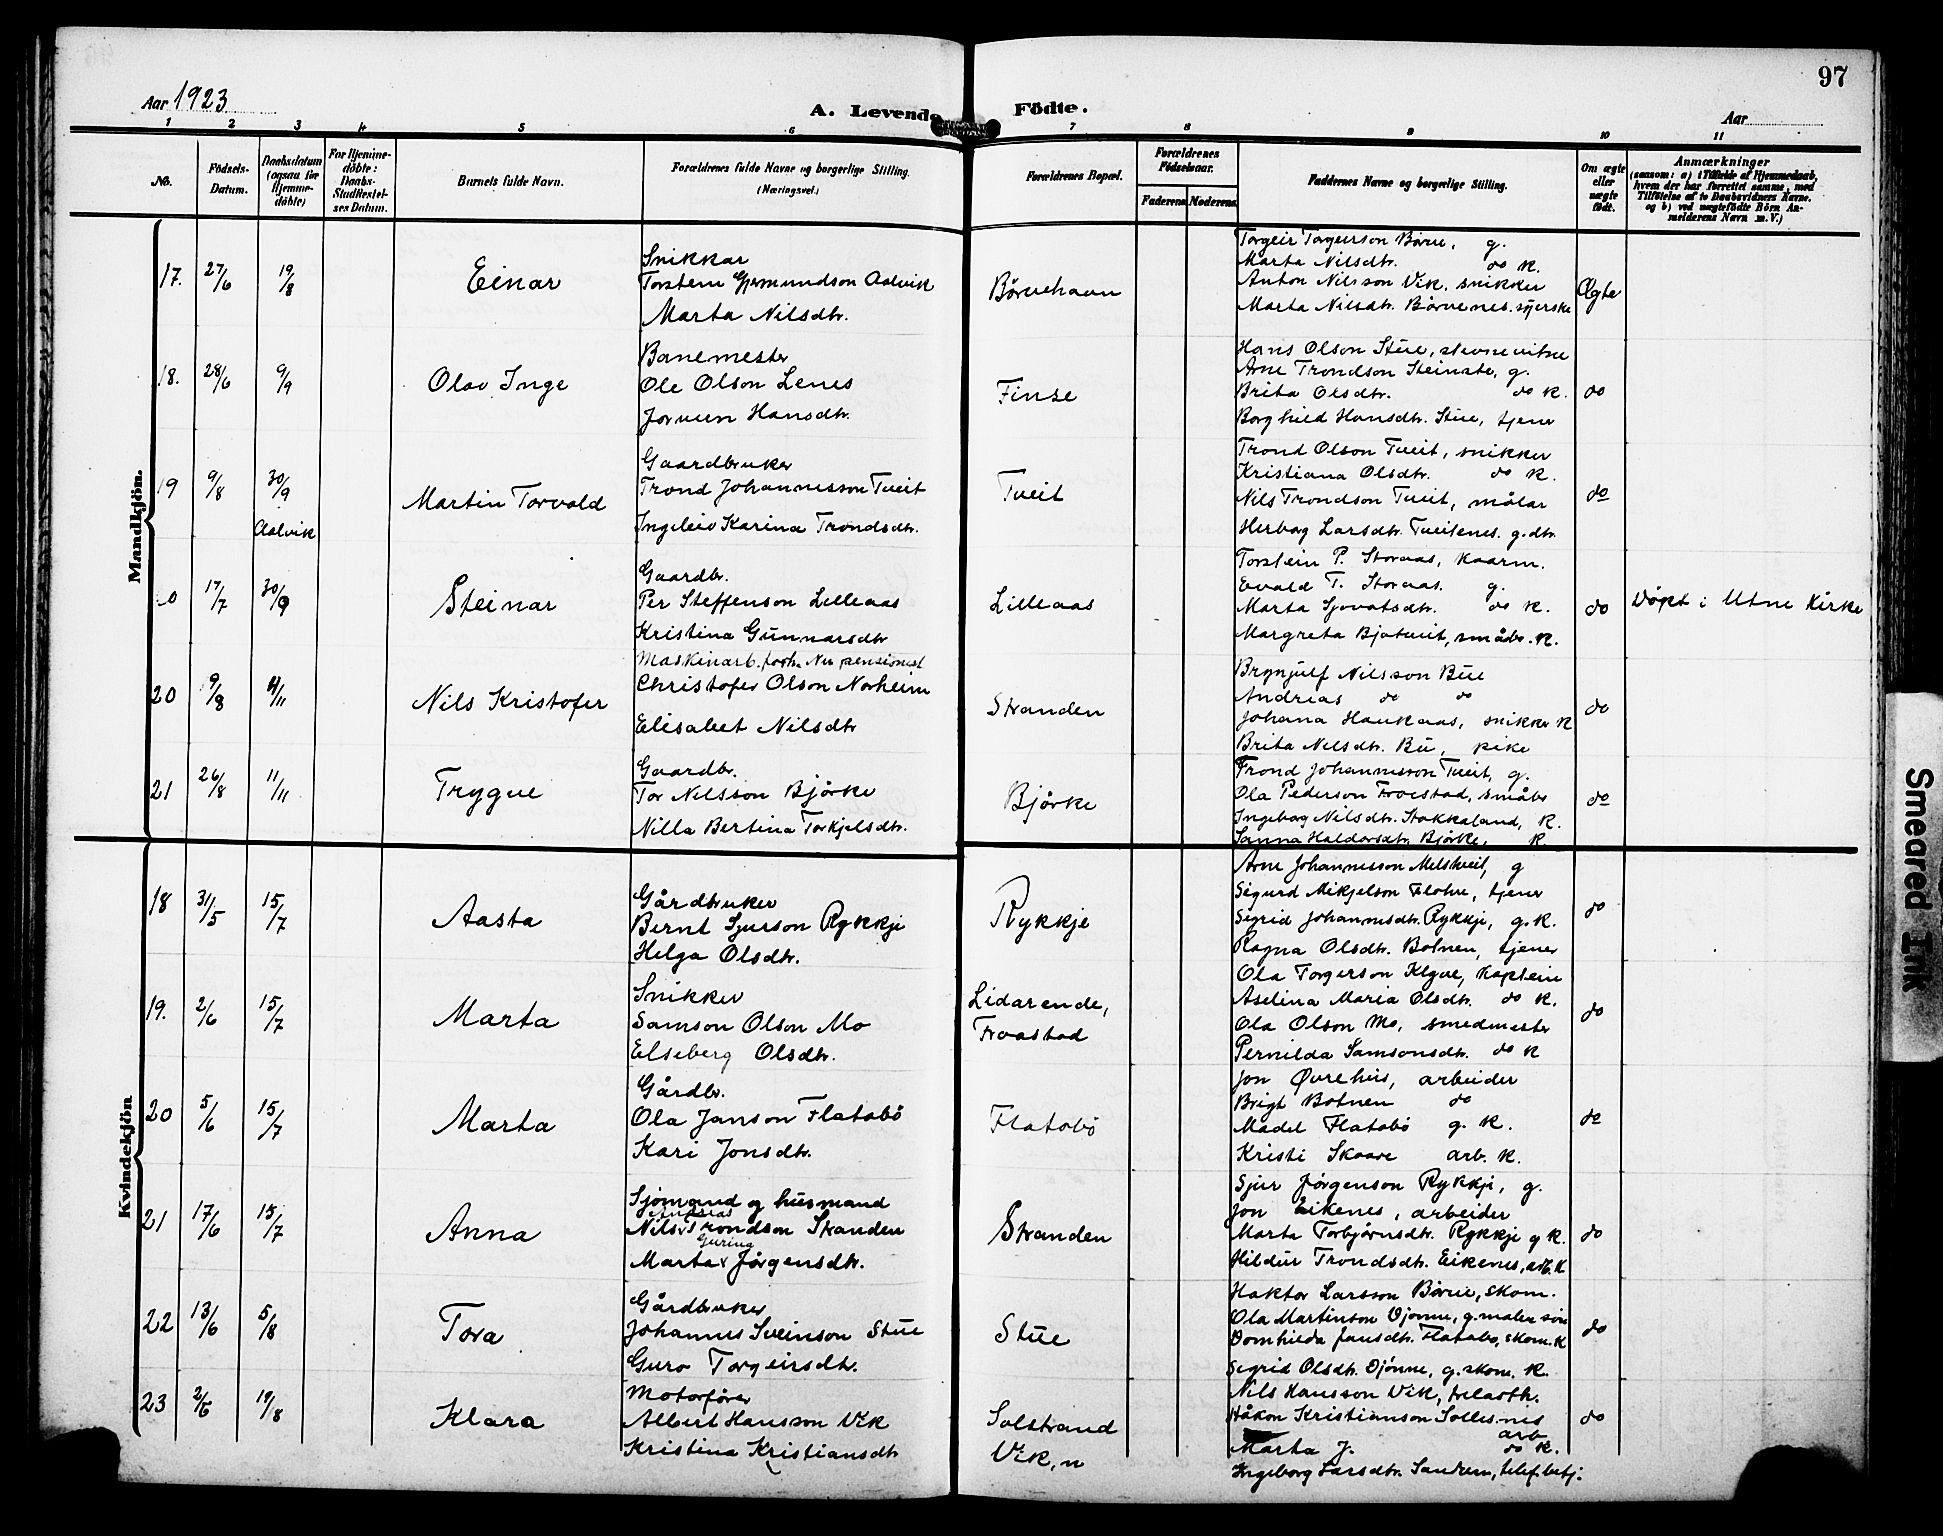 97
Aar 1923
A. Levende Födte.
Aar
1 2 3 4 5 6 7 8 9 10 11
No.
Födsels-Datum.
Daabsdatum (ogsaa for Hjemme-döbte)
For Hjemme-döbte: Daabs-Stadfæstel-ses Datum.
Barnets fulde Navn.
Forældrenes fulde Navne og borgerlige Stilling.
(Næringsvei.)
Forældrenes Bopæl.
Forældrenes Födselsaar.
Faderens Moderens
Faddernes Navne og borgerlige Stilling.
Om ægte eller uægte født.
Anmærkninger
(saasom: a) i Tilfælde af Hjemmedaab, hvem der har forrettet samme, med Tilföielse af to Daabsvidners Navne, og b) ved uægtefödte Börn An-melderens Navn m. V.)
Mandkjön.
17. 27/6 19/8 Einar
Snikkar
Torstein Gjermundson Aalvik
Marta Nilsdtr.
Børvehavn
Torgeir Torgeirson Børve, g.
Marta Nilsdtr. do k.
Anton Nilsson Vik, snikker
Marta Nilsdtr. Børvenes. syerske
Ægte
18. 28/6 9/9 Olav Inge
Banemester
Ole Olson Lenes
Jorunn Hansdtr.
Finse
Hans Olson Stue, stevnevitne
Arne Trondson Steinstø, g.
Brita Olsdtr. do k.
Borghild Hansdtr. Stue, tjener
do
19 9/8 30/9 Aalvik Martin Torvald
Gaardbruker
Trond Johannesson Tveit
Ingeleiv Karina Trondsdtr.
Tveit
Trond Olson Tveit, snikker
Kristiana Olsdtr. do k.
Nils Trondson Tveit, målar
Herborg Larsdtr. Tveitenes. g.dtr.
do
0 17/7 30/9 Steinar
Gaardbr.
Per Steffenson Lilleaas
Kristina Gunnarsdtr
Lilleaas
Torstein P. Storaas, kaarm.
Evald T. Storaas. g.
Marta Sjovatsdtr. do k.
Margreta Bjotveit, småbr. k.
do
Døpt i Utne Kirke
20 9/8 4/11 Nils Kristofer
Maskinarb. forh. Nu pensionist
Christofer Olson Norheim
Elisabet Nilsdtr
Stranden
Brynjulf Nilsson Bue
Andreas do do
Johana Haukaas, snikker k
Brita Nilsdtr. Bu, pike
do
21 26/8 11/11 Trygve
Gaardbr.
Tor Nilsson Bjørke
Nilla Bertina Torkjelsdtr.
Bjørke
Trond Johannesson Tveit, g.
Ola Pederson Froestad, småbr
Ingeborg Nilsdtr. Stokkaland, k.
Sanna Haldorsdtr. Bjørke, k
do
Kvindekjön
18 31/5 15/7 Aasta
Gårdbruker
Bernt Sjurson Rykkje
Helga Olsdtr.
Rykkje
Arne Johannesson Melstveit, g
Sigurd Mikjelson Flotve, tjener
Sigrid Johannesdtr. Rykkje, g. k.
Ragna Olsdtr. Botnen, tjener
do
19. 2/6 15/7 Marta
Snikker
Samson Olson Mo
Elseberg Olsdtr.
Lidarende,
Froastad
Ola Torgerson Klyve, kaptein
Aselina Maria Olsdtr. do k.
Ola Olson Mo, smedmester
Pernilda Samsonsdtr. do k
do
20 5/6 15/7 Marta
Gårdbr.
Ola Janson Flatabö
Kari Jonsdtr.
Flatabö
Jon Øvrehus, arbeider
Brigt Botnen do
Madel Flatabö g. k.
Kristi Skaare arb. k.
do
21 17/6 15/7 Anna
Sjømand og husmand
Andreas
Nils Trondson Stranden
Gurina
Marta Jørgensdtr.
Stranden
Sjur Jørgenson Rykkje, g.
Jon Eikenes, arbeider
Marta Torbjørnsdtr. Rykkje g k.
Hildur Trondsdtr. Eikenes, arb. k
do
22 13/6 5/8 Tora
Gårdbruker
Johannes Sveinson Stue
Guro Torgeirsdtr.
Stue
Haktor Larsson Børve, skom.
Ola Martinson Djonne, g.maler søn
Domhilda Jansdtr. Flatabo, skom. k
Sigrid Olsdtr. Djönne, g. skom. k.
do
23 2/6 19/8 Klara
Motorfører
Albert Hansson Vik
Kristina Kristiansdtr
Solstrand
Vik, n
Nils Hansson Vik,
Håkon Kristianson Sollesnes
arb
Marta J. do k.
Ingeborg Larsdtr. Sandven, telef.betj.
do
Smeared Ink